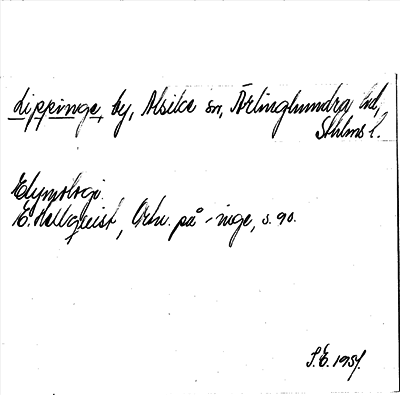 Lippinge, by, Alsike sn, Ärlinghundra hd,
Sthlms l.
Etymologi.
E. Hellquist, Ortn. på -inge, s. 90.
S.E. 1951.